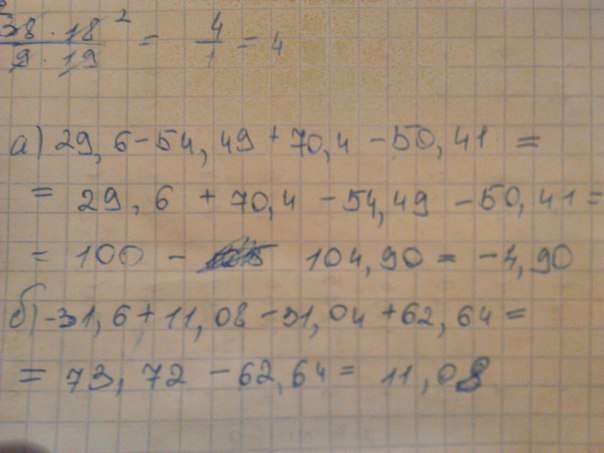 38 · 18 ² / 9 · 19 = 4/1 = 4
а) 29,6 - 54,49 + 70,4 - 50,41 =
= 29,6 + 70,4 - 54,49 - 50,41 =
= 100 - 104,90 = -4,90
б) -31,6 + 11,08 - 31,04 + 62,64 =
= 73,72 - 62,64 = 11,08